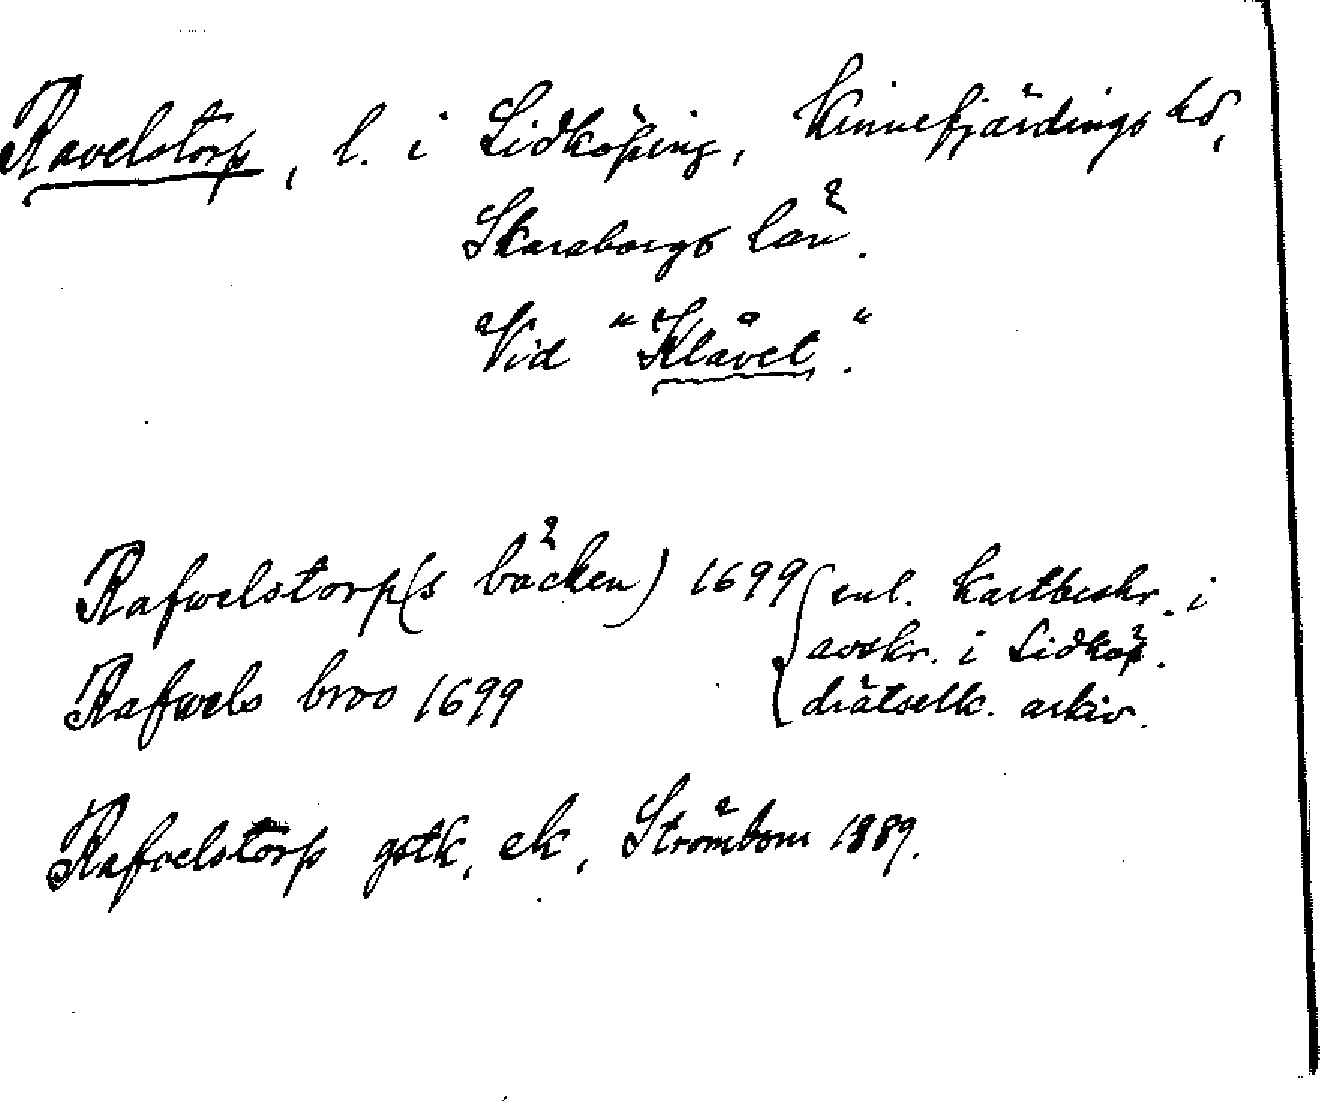 Ravelstorp, l. i Lidköping, Kinnefjärdings hd,
Skaraborgs län.
Vid "Klåvet".
Rafwelstorp(s bäcken) 1699 (enl. kartbeskr. i
avskr. i Lidköp.
Rafwels broo 1699
drätselk. arkiv.
Rafvelstorp gstk, ek, Strömbom 1889.